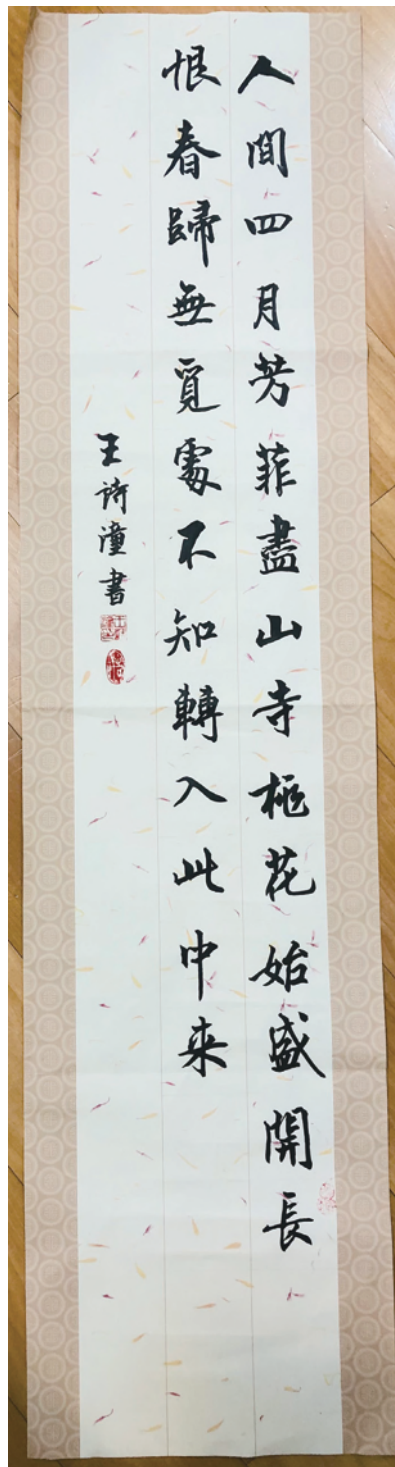 人間四月芳菲盡山寺桃花始盛開長
恨春歸無覓處不知轉入此中来
王诗潼書